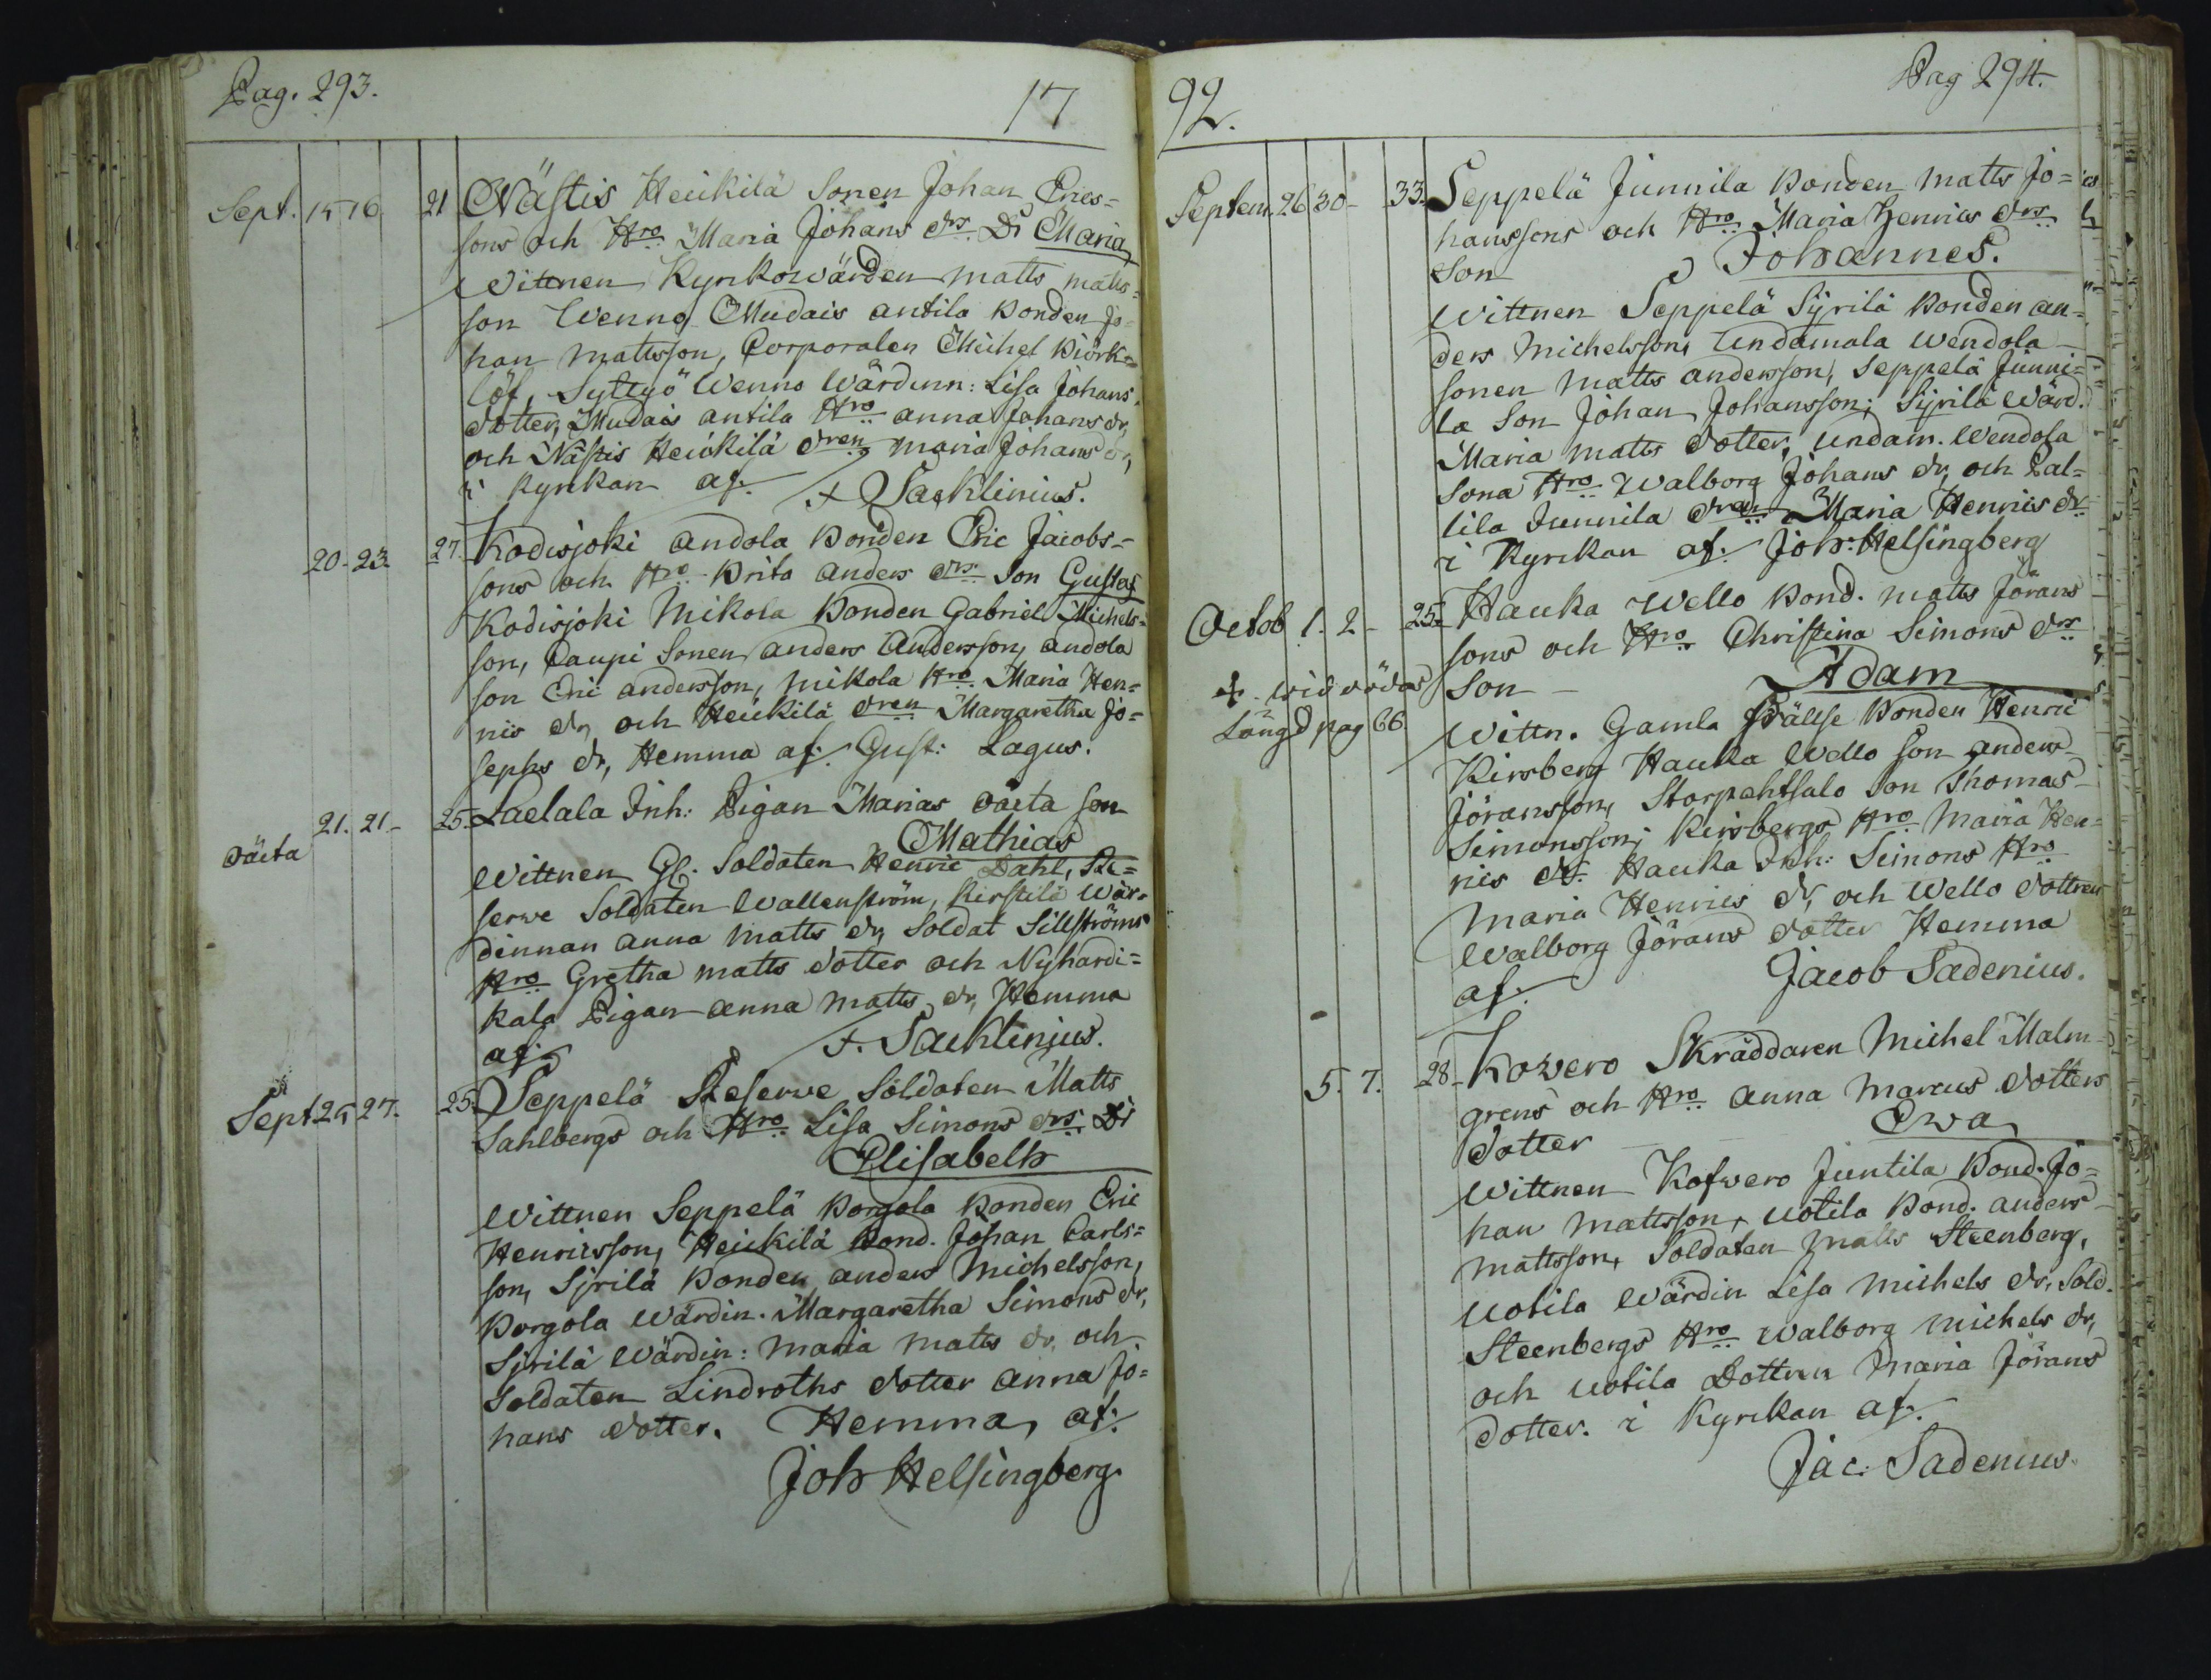 Pag. 293.
17
Sept. 15 16 21 Nästis Heickilä Sonen Johan Erics=
sons och Hro Maria Johans drs Dr Maria
Wittnen Kyrkowärden Matts matts=
son Wenno Mudais antila Bonden Jo=
han Mattsson, Corporalen Michel Biörk=
löf, Syltyö Wenno Wärdinn: Lisa Johans
dotter, Mudais antila Hro anna Johans dr,
och Nästis Heickilä dren Maria Johans dr,
i kyrkan af. F Sacklinius.
20. 23. 27. Kodisjoki andola Bonden Eric Jacobs=
sons och Hro Brita Anders drs Son Gustaf
Kodisjoki Mikola Bonden Gabriel Michels=
son, Caupi Sonen anders Andersson, andola
son Eric andersson, mikola Hro Maria Hen=
rics dr, och Heickilä dren Margaretha Jo=
sephs dr, Hemma af. Gust: Lagus.
oäcta 21. 21 25. Laelala Inh: Pigan Marias oäcta son
Mathias
Wittnen Gl. Soldaten Henric Dahl, Re=
serwe Soldaten Wallenström, Kirstilä Wär=
dinnan Anna Matts dr, Soldat Sillströms
Hro Gretha matts dotter och Nyhardi=
kala Pigan anna matts dr, Hemma
af. F. Sacklinius.
Sept. 25 27. 25. Seppelä Reserwe Soldaten Matts
Sahlbergs och Hro Lisa Simons drs Dr
Elisabeth
Wittnen Seppelä Borgola Bonden Eric
Henricsson, Heickilä Bond. Johan Carls=
son, Sjrilä Bonden anders Michelsson,
Borgola Wärdin. Margaretha Simons dr,
Sjrilä Wärdin: Maria Matts dr, och
Soldaten Lindroths dotter anna Jo=
hans dotter. Hemma, af.
Joh Helsingberg.
92.
Pag 294.
Septem. 26 30 33. Seppelä Junnila Bonden Matts Jo=
hanssons och Hro Maria Henrics drs
Son Johannes.
Wittnen Seppelä Syrilä Bonden an=
ders Michelsson, Undamala Wendola
sonen Matts andersson, Seppelä Junni=
la Son Johan Johansson; Syrilä Wärd.
Maria Matts dotter, Undam. Wendola
Sona Hro Walborg Johans dr, och Pal=
lila Junnila dren Maria Henrics dr
i Kyrckan af. Joh: Helsingberg
Octob 1. 2 25. Hauka Wello Bond. Matts Jörans
sons och Hro Christina Simons drs
+ wid dödas Son Adam
Längd pag 66. Wittn. Gamla Frälse Bonden Henric
Kirsberg Hauka Wello son anders
Jöransson, Storpahtsalo Son Thomas
Simonsson; Kirsbergs Hro Maria Hen=
rics dr. Hauka Inh: Simons Hro
Maria Henrics dr, och Wello dottren
Walborg Jörans dotter Hemma
af. Jacob Sadenius.
5. 7. 28 Kowero Skräddaren Michel Malm
grens och Hro anna Marcus dotters
dotter Ewa
Wittnen Kofwero Juntila Bond. Jo=
han Mattsson, Uotila Bond. anders
Mattsson, Soldaten Matts Steenberg,
Uotila Wärdin Lisa Michels dr, Sold.
Steenbergs Hro Walborg Michels dr,
och Uotila Dottren Maria Jörans
dotter. i Kyrckan af.
Jac: Sadenius.